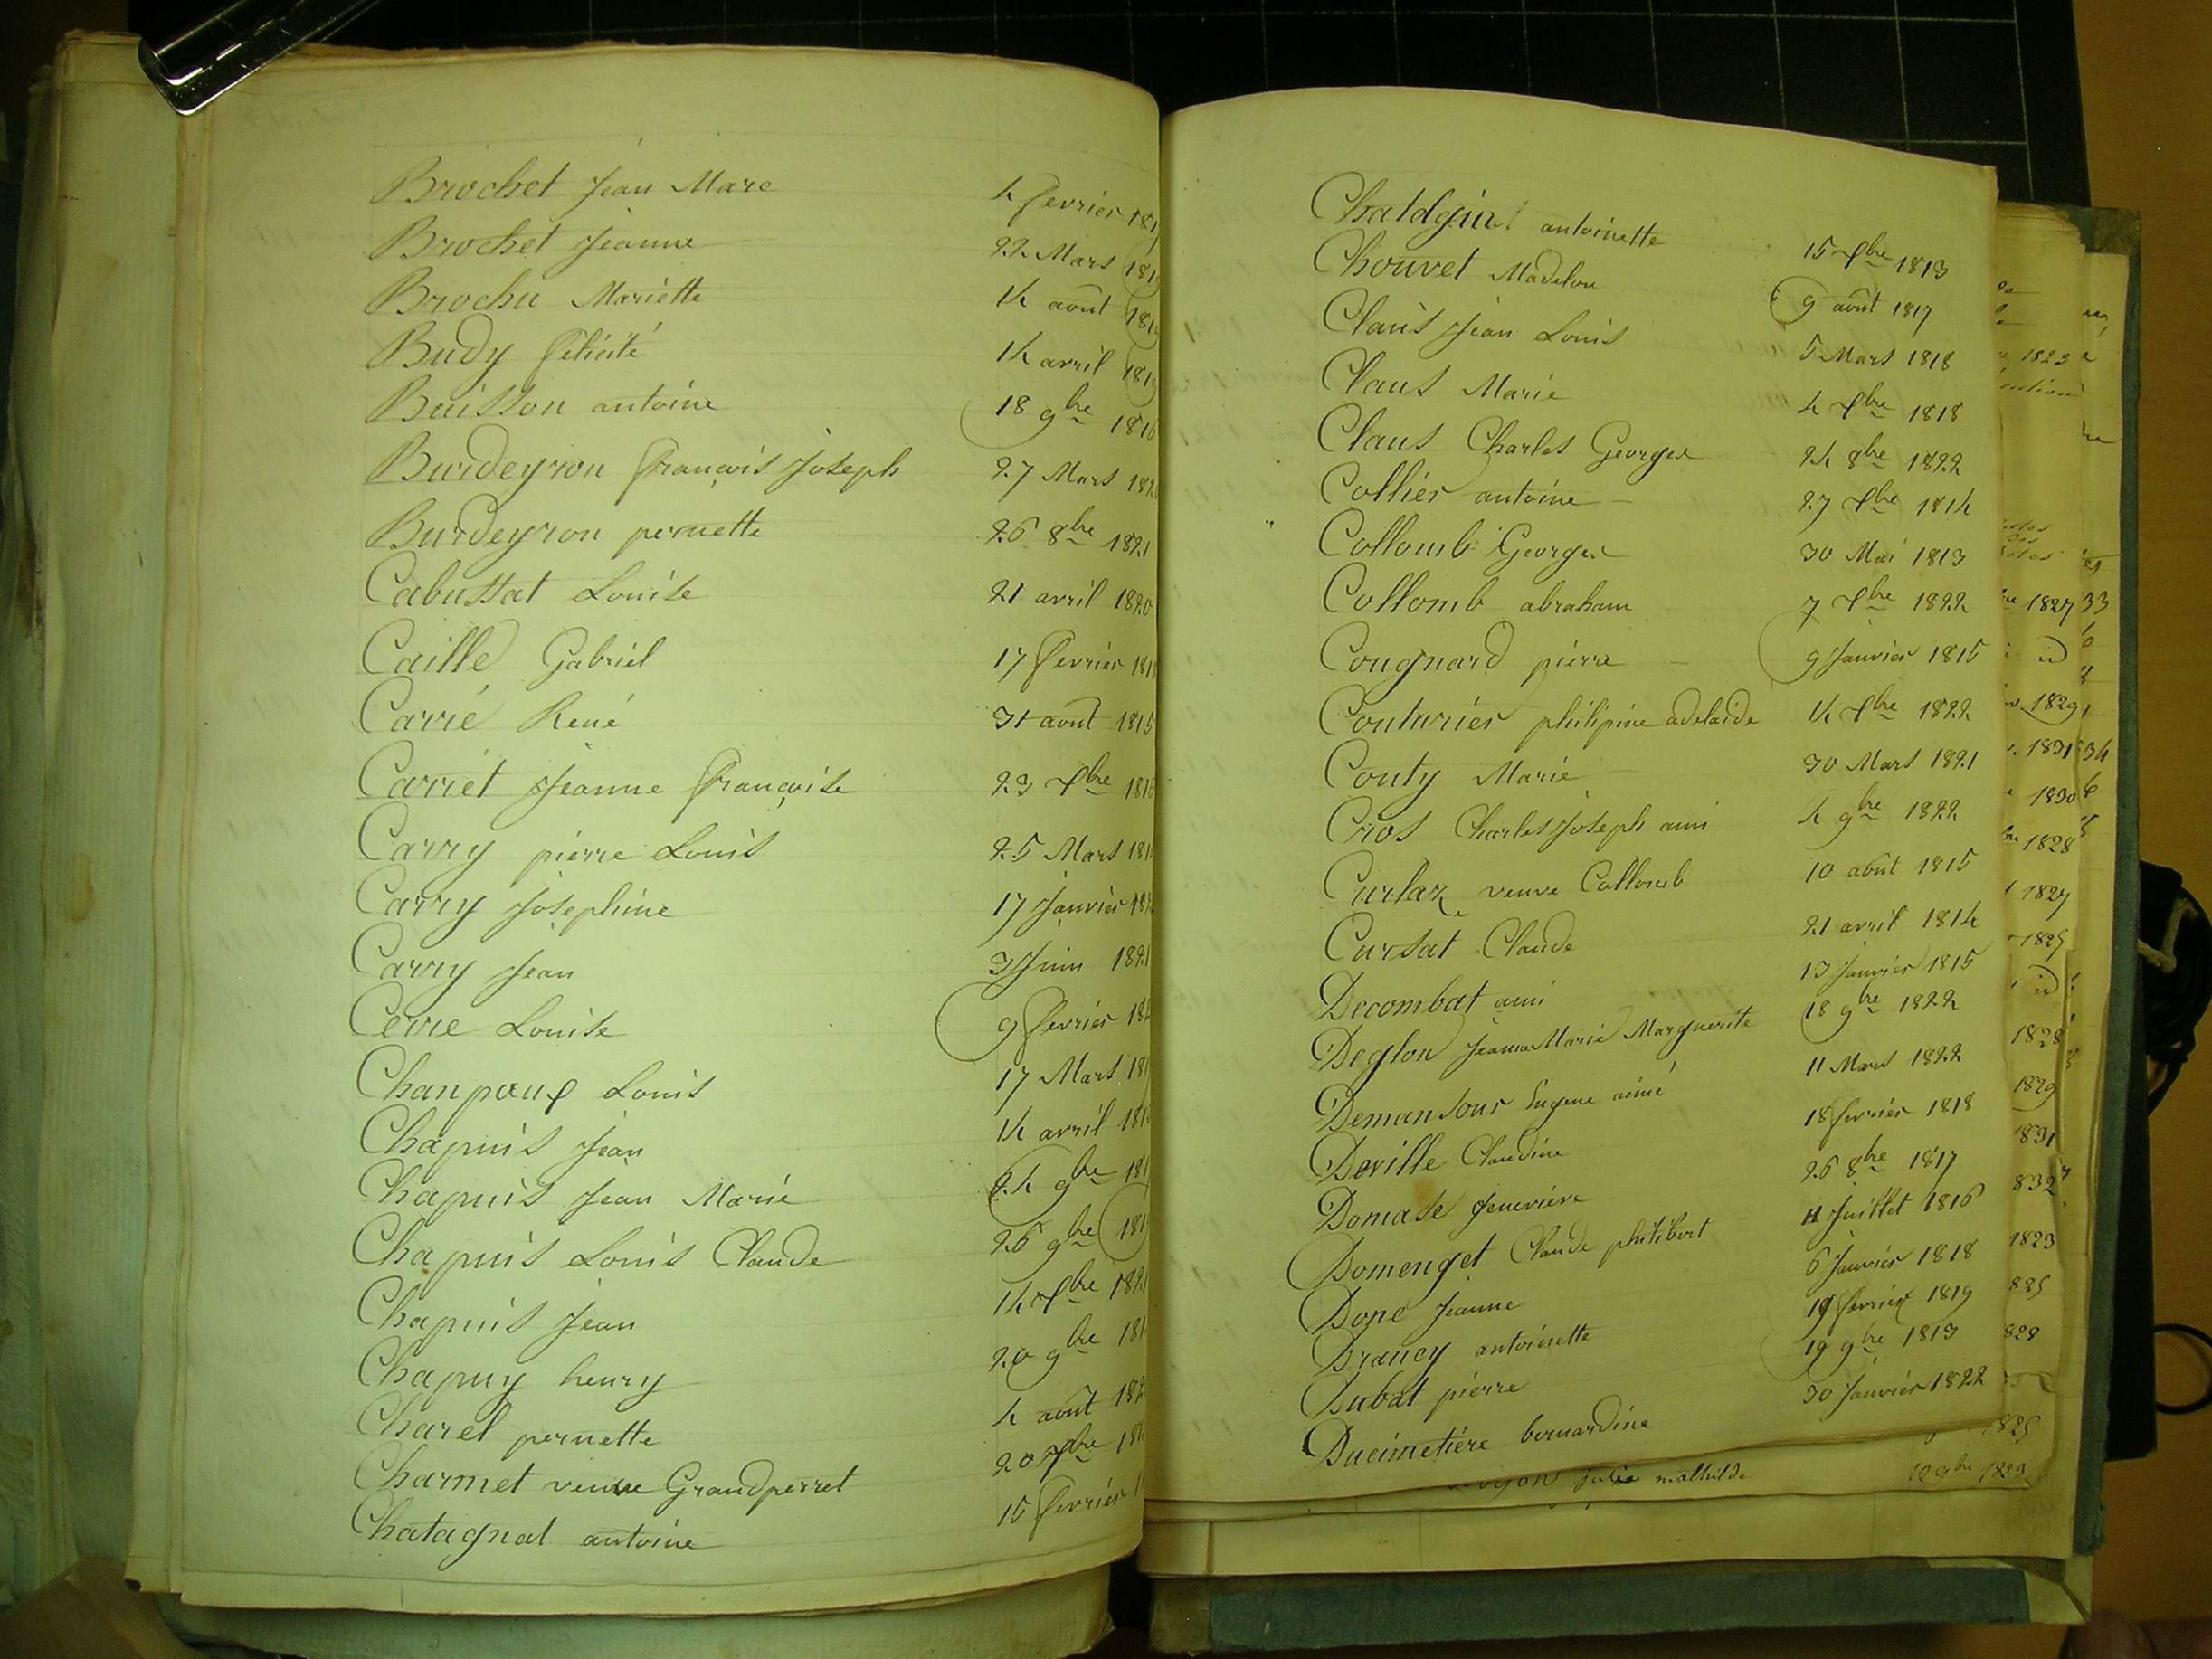 Brochet Jean Marc 4 fevrier 181
Brochet Jeanne 22 Mars 181
Brochu Mariette 14 août 181
Budy felicité 14 avril 1819
Buisson antoine 18 9bre 1816
Burdeyron françois Joseph 27 Mars 182
Burdeyron pernette 26 8bre 1821
Cabussat Louise 21 avril 1820
Caille Gabriel 17 fevrier 181
Carrié René 31 août 1815
Carriet Jeanne françoise 23 Xbre 1816
Carry pierre Louis 25 Mars 181
Carry Josephine 17 Janvier 18
Carry Jean 3 Juin 1821
Cevre Louise 9 fevrier 182
Chanpoux Louis 17 Mars 181
Chapuis Jean 14 avril 181
Chapuis Jean Marie 24 9bre 181
Chapuis Louis Claude 26 9bre 181
Chapuis Jean 14 Xbre 182
Chapuy henry 20 9bre 181
Charel pernette 4 août 182
Charmet veuve Grandperret 20 7bre 18
Chatagnat antoine 15 fevrier 1
antoinette 15 Xbre 1813
Chouvet Madelon 9 août 1817
Claus Jean Louis 5 Mars 1818
Claus Marie 4 Xbre 1818
Claus Charles Georges 24 8bre 1822
Collier antoine 27 Xbre 1814
" Collomb Georges 30 Mai 1813
Collomb abraham 7 Xbre 1822
Cougnard pierre 9 Janvier 1815
Couturier philipine adelaide 14 Xbre 1822
Couty Marie 30 Mars 1821
Cros Charles Joseph ami 4 9bre 1822
Curlaz veuve Collomb 10 août 1815
Cursat Claude 21 avril 1814
Decombat ami 13 Janvier 1815
Deglon Jeanne Marie Marguerite 18 9bre 1822
Demansous Eugene aimé 11 Mars 1822
Deville Claudine 18 fevrier 1818
Domase genevieve 26 8bre 1817
Domenget Claude philibert 11 Juillet 1816
Dope Jeanne 6 Janvier 1818
Drancy antoinette 19 fevrier 1819
Dubat pierre 19 9bre 1813
Ducimetiére bernardine 30 Janvier 1822
julie mathilde 12 9bre 1823
1823
1827 33
id
1829
1831 34
1830
1828
1827
1825
id
1828
1829
1831
832
1823
825
828
825